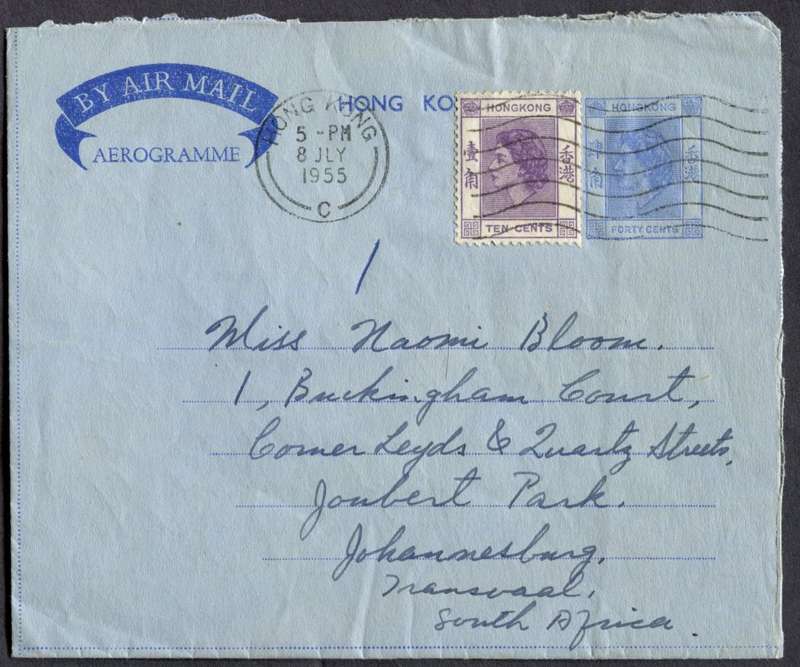 BY AIR MAIL
AEROGRAMME
HONG KO
HONG KONG
5 - PM
8 JLY
1955
C
HONGKONG
壹角
香港
TEN CENTS
HONGKONG
肆角
香港
FORTY CENTS
Miss Naomi Bloom.
1, Buckingham Court,
Corner Leyds & Quartz Streets,
Joubert Park.
Johannesburg.
Transvaal.
South Africa.